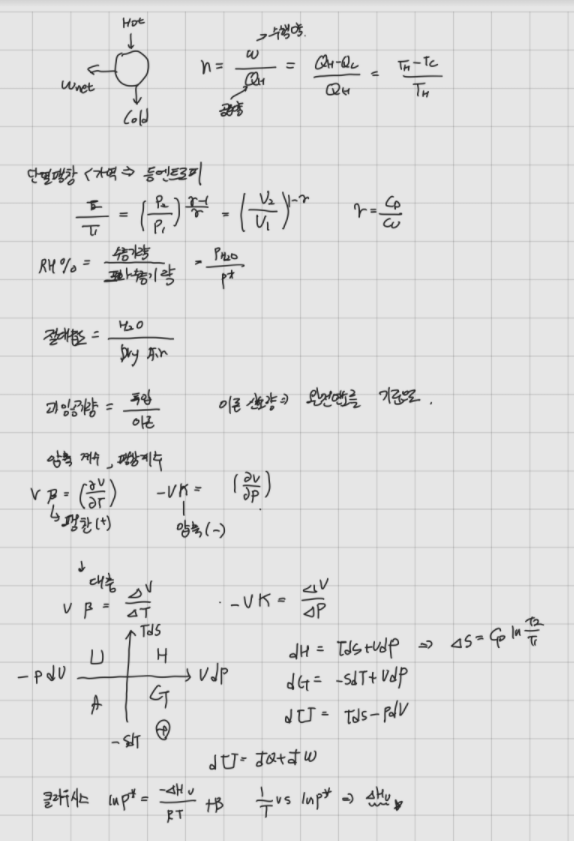 Hot
Wnet
Cold
η = w / Q_H = (Q_H-Q_C) / Q_H = (T_H-T_C) / T_H
→수행량
단열팽창 <가역 ⇒ 등엔트로피
T₂/T₁ = (P₂/P₁)^((γ-1)/γ) = (V₂/V₁)^(1-γ) γ = Cp/Cv
RH% = 수증기량 / 포화수증기량 = P_H₂O / P*
절대습도 = H₂O / Dry Air
과잉공기량 = 투입 / 이론 이론 산소량 ⇒ 완전연소를 기준으로.
압축 계수, 팽창계수
Vβ = (∂V/∂T) -VK = (∂V/∂P)
↳팽창(+) 압축(-)
↓대충
Vβ = ΔV/ΔT -VK = ΔV/ΔP
TdS
U H
-PdV VdP
A G
-SdT
dH = TdS+VdP ⇒ ΔS = Cp ln T₂/T₁
dG = -SdT+VdP
dU = TdS-PdV
dU = đQ+đW
클라우시스 lnP* = -ΔHv/RT +B 1/T vs lnP* ⇒ ΔHv